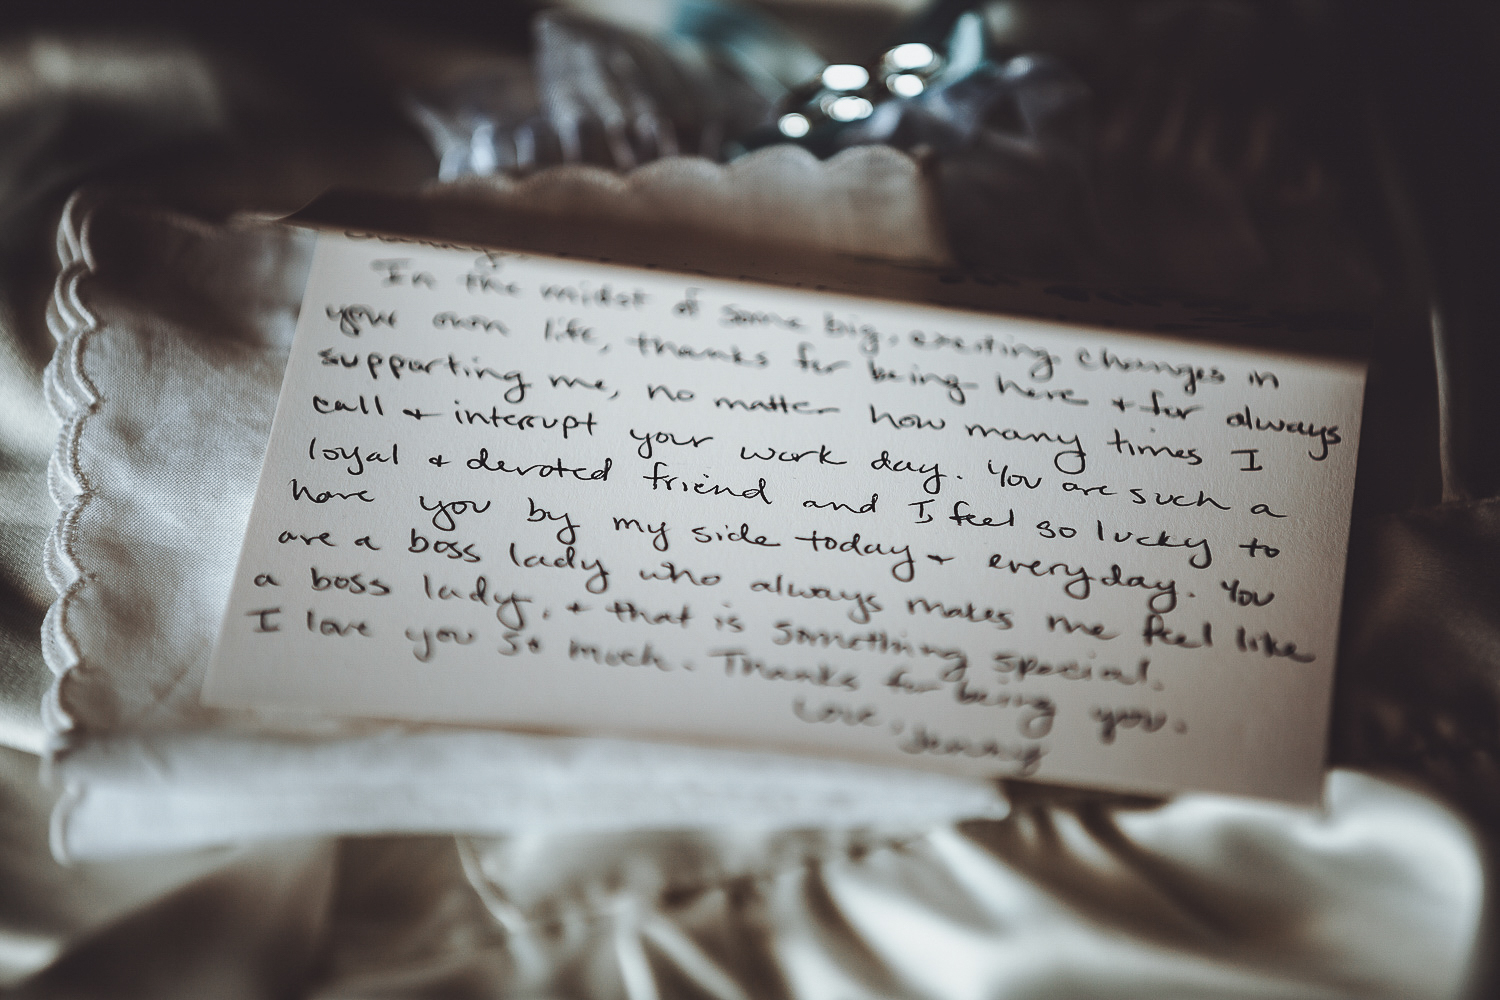 In the midst of some big, exciting changes in
your own life, thanks for being here + for always
supporting me, no matter how many times I
call + interrupt your work day. You are such a
loyal + devoted friend and I feel so lucky to
have you by my side today + everyday. You
are a boss lady who always makes me feel like
a boss lady, + that is something special.
I love you so much. Thanks for being you.
Love,